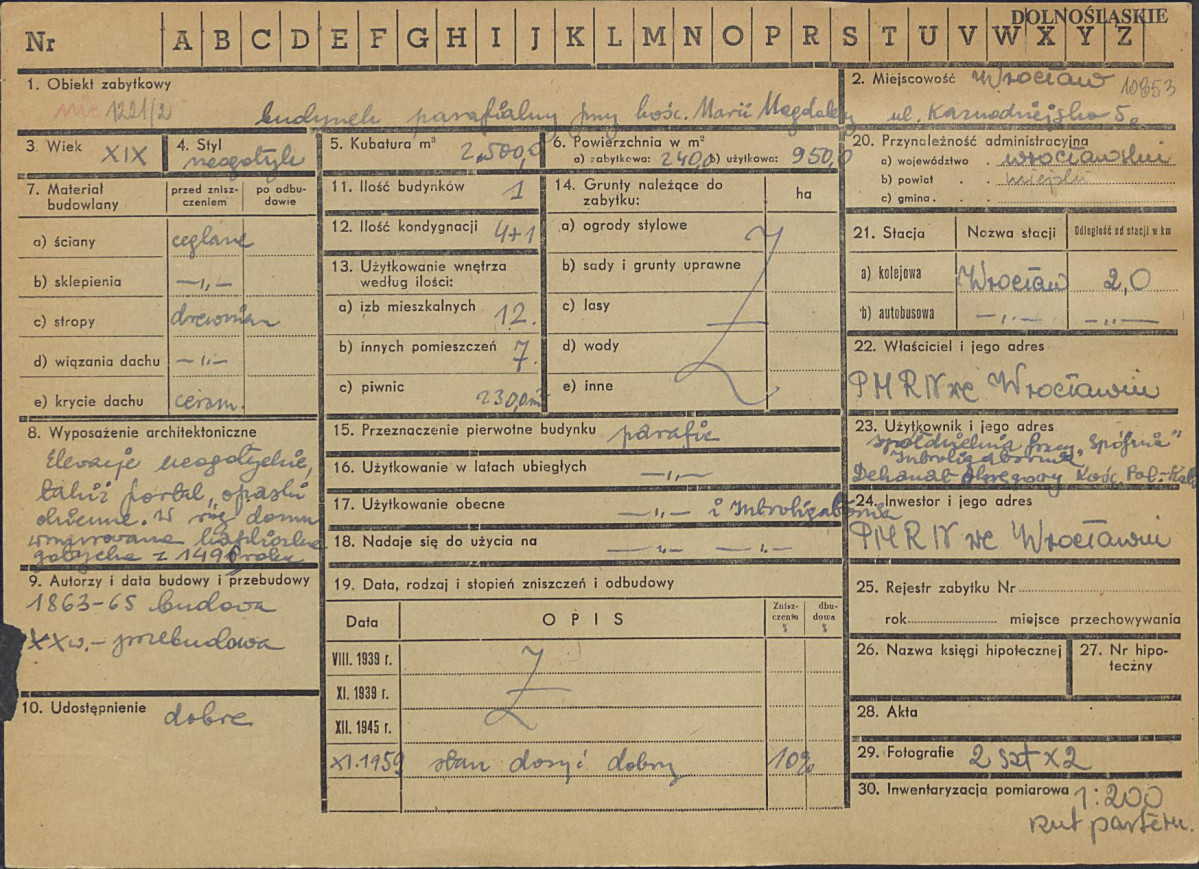 DOLNOŚLĄSKIE
Nr A B C D E F G H I J K L M N O P R S T U V W X Y Z
1. Obiekt zabytkowy
1221/2 budynek parafialny przy kośc. Marii Magdaleny
2. Miejscowość Wrocław 10853
ul. Kaznodziejska 5.
3. Wiek XIX
4. Styl neogotyk
5. Kubatura m³ 2,500,0
6. Powierzchnia w m²
a) zabytkowa: 240,0 b) użytkowa: 950,0
7. Materiał budowlany
przed zniszczeniem
po odbudowie
a) ściany ceglane
b) sklepienia —„—
c) stropy drewnian
d) wiązania dachu —„—
e) krycie dachu ceram.
8. Wyposażenie architektoniczne
Elewacje neogotyckie,
także portal, opaski
okienne. W róg domu
wmurowana kapliczka
gotycka z 1496 roku
9. Autorzy i data budowy i przebudowy
1863-65 budowa
XXw. - przebudowa
10. Udostępnienie dobre
11. Ilość budynków 1
12. Ilość kondygnacji 4+1
13. Użytkowanie wnętrza
według ilości:
a) izb mieszkalnych 12.
b) innych pomieszczeń 7.
c) piwnic 230,0m²
14. Grunty należące do
zabytku:
ha
a) ogrody stylowe
b) sady i grunty uprawne
c) lasy
d) wody
e) inne
15. Przeznaczenie pierwotne budynku parafie
16. Użytkowanie w latach ubiegłych —„—
17. Użytkowanie obecne —„— i Introligatornia
18. Nadaje się do użycia na —„— —„—
19. Data, rodzaj i stopień zniszczeń i odbudowy
Data
OPIS
Zniszczenia %
dbudowa %
VIII. 1939 r.
XI. 1939 r.
XII. 1945 r.
XI.1959 stan dosyć dobry 10%
20. Przynależność administracyjna
a) województwo wrocławski
b) powiat miejski
c) gmina
21. Stacja
Nazwa stacji
Odległość od stacji w km
a) kolejowa Wrocław 2,0
b) autobusowa —„— —„—
22. Właściciel i jego adres
PMRN we Wrocławiu
23. Użytkownik i jego adres
Spółdzielnia Pracy „Spójnia”
Introligatornia
Dekanat Okręgowy Kośc. Pol-Kat.
24. Inwestor i jego adres
PMRN we Wrocławiu
25. Rejestr zabytku Nr
rok miejsce przechowywania
26. Nazwa księgi hipotecznej
27. Nr hipoteczny
28. Akta
29. Fotografie 2 szt x2
30. Inwentaryzacja pomiarowa 1:200
rzut parteru.